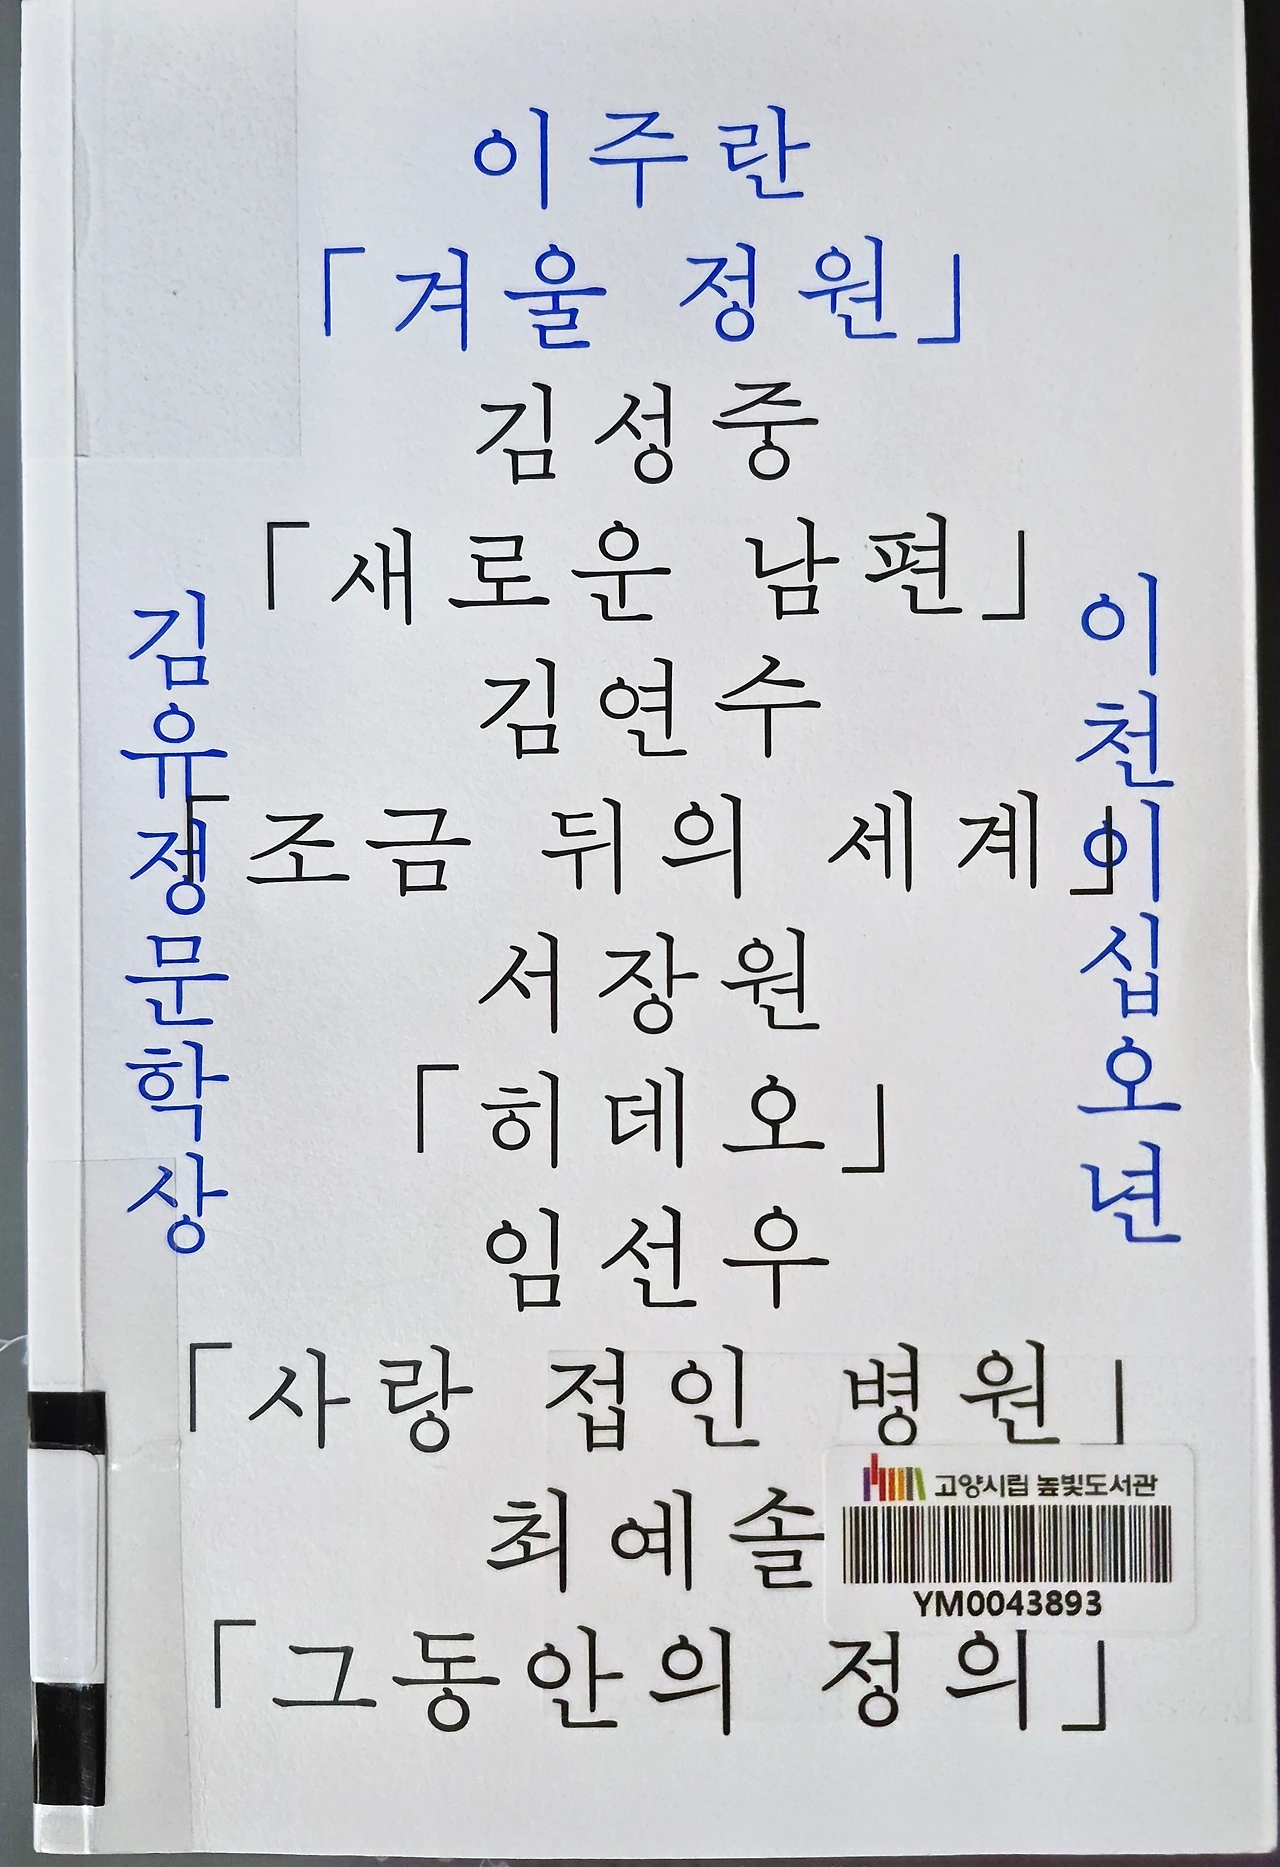 이주란
「겨울 정원」
김성중
「새로운 남편」
김연수
「조금 뒤의 세계」
서장원
「히데오」
임선우
「사랑 접인 병원」
최예솔
「그동안의 정의」
김유정문학상
이천이십오년
고양시립 높빛도서관
YM0043893